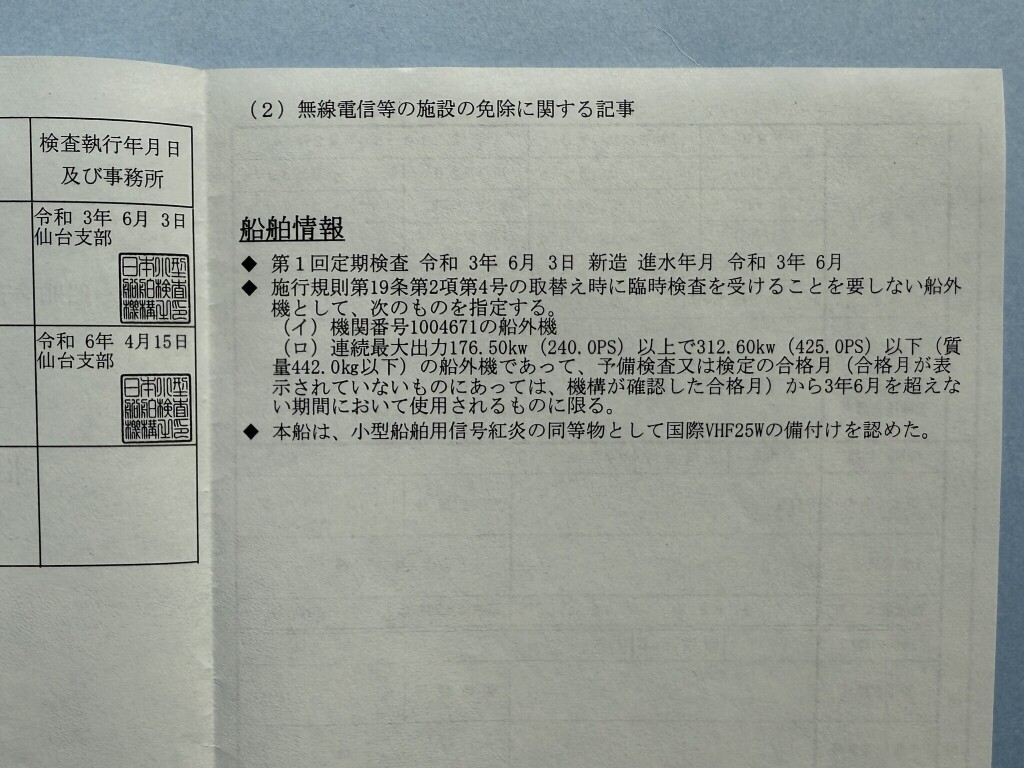 検査執行年月日
及び事務所
令和 3年 6月 3日
仙台支部
日本小型
船舶検査
機構之印
令和 6年 4月15日
仙台支部
日本小型
船舶検査
機構之印
（2）無線電信等の施設の免除に関する記事
船舶情報
◆ 第1回定期検査 令和 3年 6月 3日 新造 進水年月 令和 3年 6月
◆ 施行規則第19条第2項第4号の取替え時に臨時検査を受けることを要しない船外
機として、次のものを指定する。
（イ）機関番号1004671の船外機
（ロ）連続最大出力176.50kw（240.0PS）以上で312.60kw（425.0PS）以下（質
量442.0kg以下）の船外機であって、予備検査又は検定の合格月（合格月が表
示されていないものにあっては、機構が確認した合格月）から3年6月を超えな
い期間において使用されるものに限る。
◆ 本船は、小型船舶用信号紅炎の同等物として国際VHF25Wの備付けを認めた。